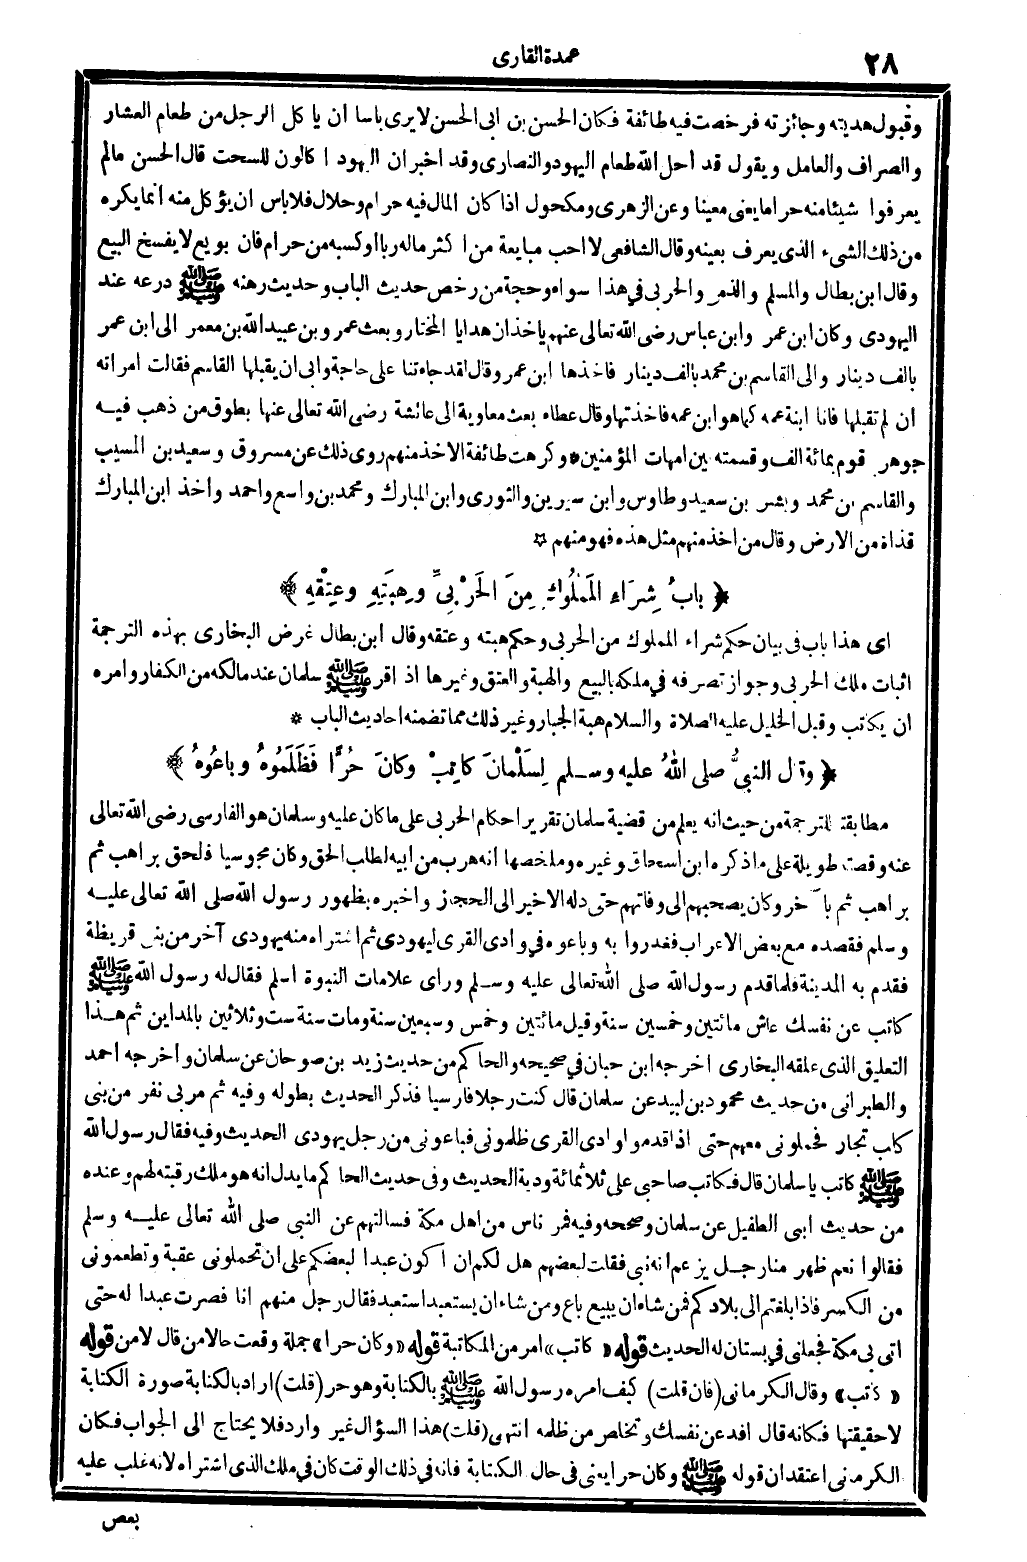 ٢٨
عمدة القارى
وقبول هديته وجائزته فرخصت فيه طائفة فكان الحسن بن ابى الحسن لا يرى باسا ان ياكل الرجل من طعام العشار
والصراف والعامل ويقول قد أحل الله طعام اليهود والنصارى وقد اخبر ان اليهود اكالون للسحت قال الحسن مالم
يعرفوا شيئا منه حراما يعنى معينا وعن الزهرى ومكحول اذا كان المال فيه حرام وحلال فلا باس ان يؤكل منه انما يكره
من ذلك الشىء الذى يعرف بعينه وقال الشافعى لا احب مبايعة من اكثر ماله ربا او كسبه من حرام فان بويع لا يفسخ البيع
وقال ابن بطال والمسلم والذمى والحربى فى هذا سواء وحجة من رخص حديث الباب وحديث رهنه ﷺ درعه عند
اليهودى وكان ابن عمر وابن عباس رضى الله تعالى عنهم ياخذان هدايا المختار وبعث عمرو بن عبيد الله بن معمر الى ابن عمر
بالف دينار والى القاسم بن محمد بالف دينار فاخذها ابن عمر وقال لقد جاءتنا على حاجة وابى ان يقبلها القاسم فقالت امراته
ان لم تقبلها فانا ابنة عمه كما هو ابن عمه فاخذتها وقال عطاء بعث معاوية الى عائشة رضى الله تعالى عنها بطوق من ذهب فيه
جوهر قوم بمائة الف وقسمته بين امهات المؤمنين * وكرهت طائفة الاخذ منهم روى ذلك عن مسروق وسعيد بن المسيب
والقاسم بن محمد وبشر بن سعيد وطاوس وابن سيرين والثورى وابن المبارك ومحمد بن واسع واحمد واخذ ابن المبارك
قذاة من الارض وقال من اخذ منهم مثل هذه فهو منهم ☆
﴿ بابُ شِرَاءِ المَمْلُوكِ مِنَ الحَرْبِىِّ وهِبَتِهِ وعِتْقِهِ ﴾
اى هذا باب فى بيان حكم شراء المملوك من الحربى وحكم هبته وعتقه وقال ابن بطال غرض البخارى بهذه الترجمة
اثبات ملك الحربى وجواز تصرفه فى ملكه بالبيع والهبة والعتق وغيرها اذ اقر ﷺ سلمان عند مالكه من الكفار وامره
ان يكاتب وقبل الخليل عليه الصلاة والسلام هبة الجبار وغير ذلك مما تضمنه احاديث الباب *
﴿ وقال النبىُّ صلى اللهُ عليه وسلم لِسَلْمَانَ كاتِبْ وكانَ حُرًّا فَظَلَمُوهُ وباعُوهُ ﴾
مطابقته للترجمة من حيث انه يعلم من قضية سلمان تقرير احكام الحربى على ما كان عليه وسلمان هو الفارسى رضى الله تعالى
عنه وقصته طويلة على ما ذكره ابن اسحاق وغيره وملخصها انه هرب من ابيه لطلب الحق وكان مجوسيا فلحق براهب ثم
براهب ثم بآخر وكان يصحبهم الى وفاتهم حتى دله الاخير الى الحجاز واخبره بظهور رسول الله صلى الله تعالى عليه
وسلم فقصده مع بعض الاعراب فغدروا به وباعوه فى وادى القرى ليهودى ثم اشتراه منه يهودى آخر من بنى قريظة
فقدم به المدينة فلما قدم رسول الله صلى الله تعالى عليه وسلم وراى علامات النبوة اسلم فقال له رسول الله ﷺ
كاتب عن نفسك عاش مائتين وخمسين سنة وقيل مائتين وخمس وسبعين سنة ومات سنة ست وثلاثين بالمداين ثم هذا
التعليق الذى علقه البخارى اخرجه ابن حبان فى صحيحه والحاكم من حديث زيد بن صوحان عن سلمان واخرجه احمد
والطبرانى من حديث محمود بن لبيد عن سلمان قال كنت رجلا فارسيا فذكر الحديث بطوله وفيه ثم مر بى نفر من بنى
كلب تجار فحملونى معهم حتى اذا قدموا وادى القرى ظلمونى فباعونى من رجل يهودى الحديث وفيه فقال رسول الله
ﷺ كاتب يا سلمان قال فكاتب صاحبى على ثلاثمائة ودية الحديث وفى حديث الحاكم ما يدل انه هو ملك رقبته لهم وعنده
من حديث ابى الطفيل عن سلمان وصححه وفيه فمر ناس من اهل مكة فسالتهم عن النبى صلى الله تعالى عليه وسلم
فقالوا نعم ظهر منا رجل يزعم انه نبى فقلت لبعضهم هل لكم ان اكون عبدا لبعضكم على ان تحملونى عقبة وتطعمونى
من الكسر فاذا بلغتم الى بلادكم فمن شاء ان يبيع باع ومن شاء ان يستعبد استعبد فقال رجل منهم انا فصرت عبدا له حتى
اتى بى مكة فجعلنى فى بستان له الحديث قوله «كاتب» امر من المكاتبة قوله «وكان حرا» جملة وقعت حالا من قال لا من قوله
«كاتب» وقال الكرمانى (فان قلت) كيف امره رسول الله ﷺ بالكتابة وهو حر (قلت) اراد بالكتابة صورة الكتابة
لا حقيقتها فكانه قال افد عن نفسك وتخلص من ظلمه انتهى (قلت) هذا السؤال غير وارد فلا يحتاج الى الجواب فكان
الكرمانى اعتقد ان قوله ﷺ وكان حرا يعنى فى حال الكتابة فانه فى ذلك الوقت كان فى ملك الذى اشتراه لانه غلب عليه
بعض